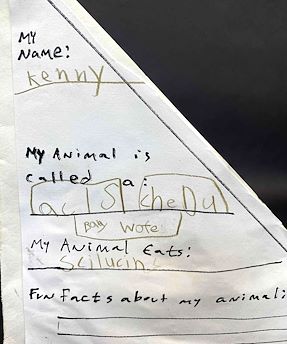 My
Name:
Kenny
My Animal is
called a:
ac IS cheDu
Bow wote
My Animal Eats:
Scilucin
Fun Facts about my animal: